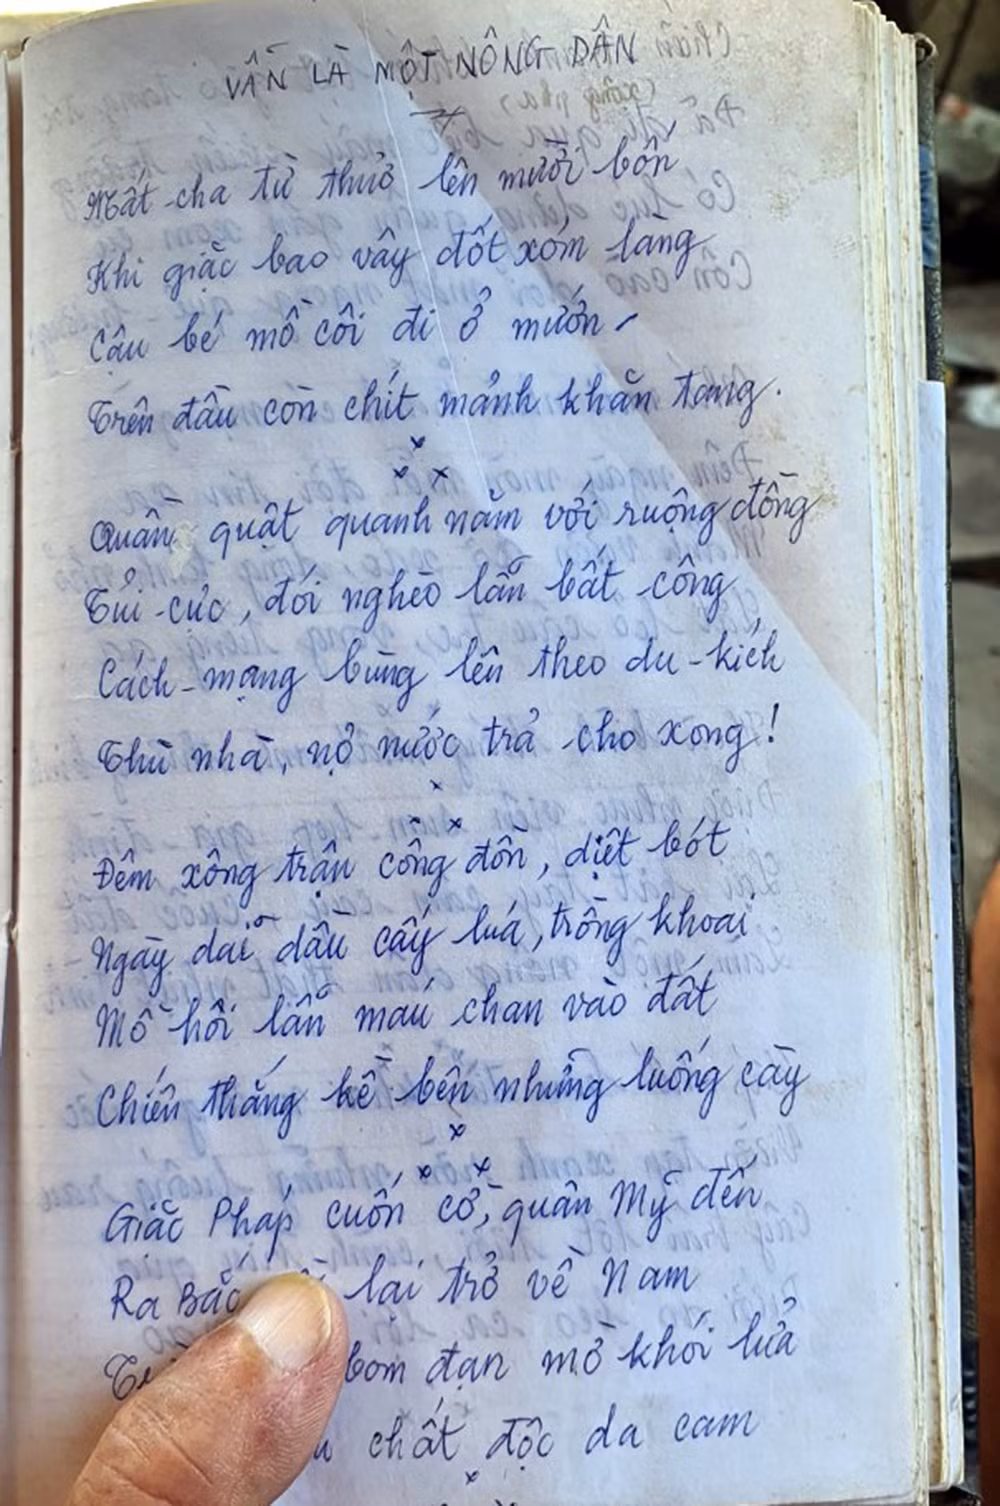 VẪN LÀ MỘT NÔNG DÂN
Mất cha từ thuở lên mười bốn
Khi giặc bao vây đốt xóm làng
Cậu bé mồ côi đi ở mướn
Trên đầu còn chít mảnh khăn tang.
Quần quật quanh năm với ruộng đồng
Tủi cực, đói nghèo lẫn bất công
Cách-mạng bùng lên theo du-kích
Thù nhà, nợ nước trả cho xong!
Đêm xông trận công đồn, diệt bót
Ngày dãi dầu cấy lúa, trồng khoai
Mồ hôi lẫn máu chan vào đất
Chiến thắng kề bên những luống cày
Giặc Pháp cuốn cờ, quân Mỹ đến
Ra Bắc lại trở về Nam
bom đạn mờ khói lửa
chất độc da cam